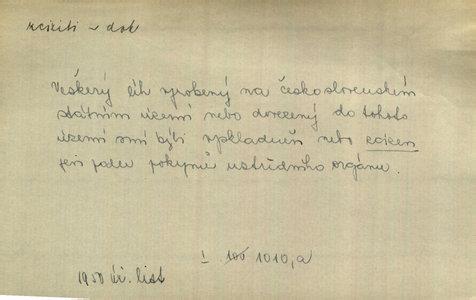 zciziti ~ dok
Veškerý líh vyrobený na československém
státním území nebo dovezený do tohoto
území smí býti vyskladněn nebo zcizen
jen podle pokynů ústředního orgánu.
I 100 1010, a
1950 úř. list